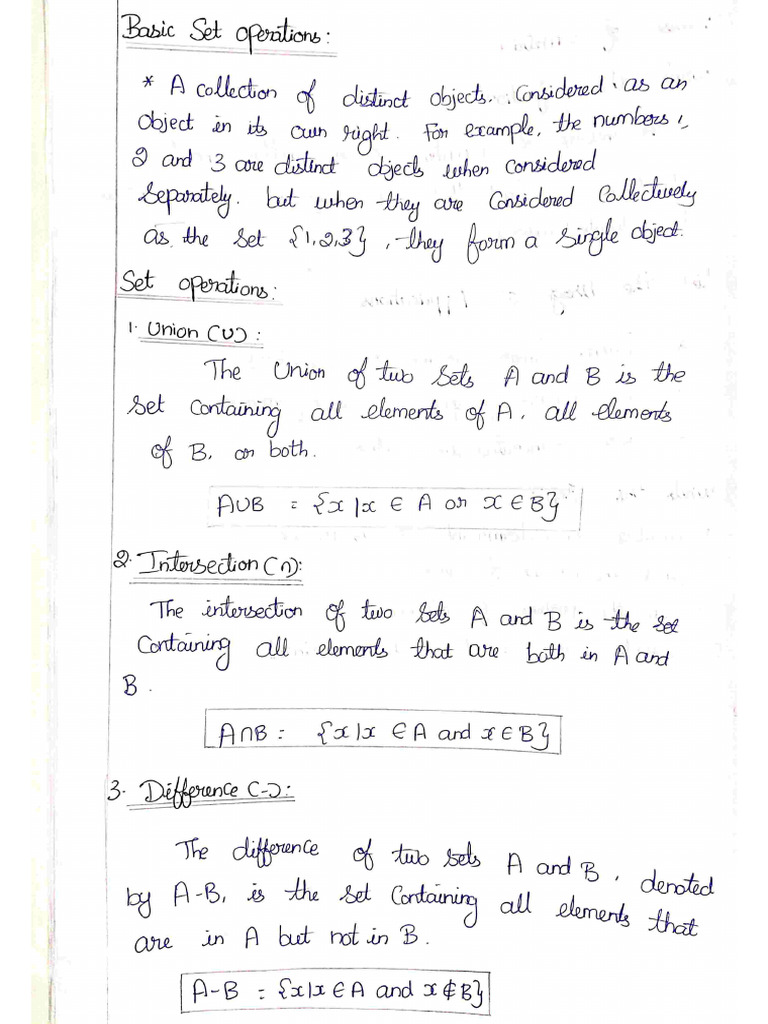 Basic Set operations:
* A collection of distinct objects. Considered as an
object in its own right. For example, the numbers 1,
2 and 3 are distinct objects when considered
Separately. but when they are Considered Collectively
as the set {1,2,3}, they form a single object.
Set operations:
1. Union (∪):
The Union of two sets A and B is the
set containing all elements of A, all elements
of B, or both.
A∪B = {x|x ∈ A or x ∈ B}
2. Intersection (∩):
The intersection of two sets A and B is the set
Containing all elements that are both in A and
B.
A∩B = {x|x ∈ A and x ∈ B}
3. Difference (-):
The difference of two sets A and B, denoted
by A-B, is the set Containing all elements that
are in A but not in B.
A-B = {x|x ∈ A and x ∉ B}